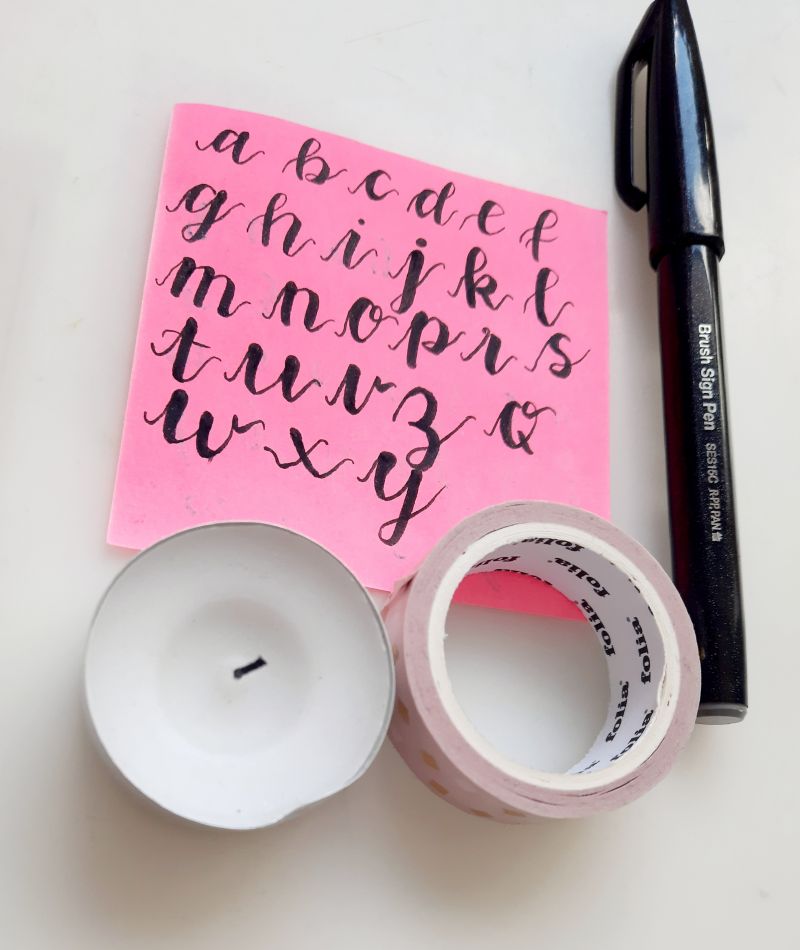 a b c d e f
g h i j k l
m n o p r s
t u v z Q
w x y
Brush Sign Pen SES15C
folia
folia
folia
folia
folia
folia